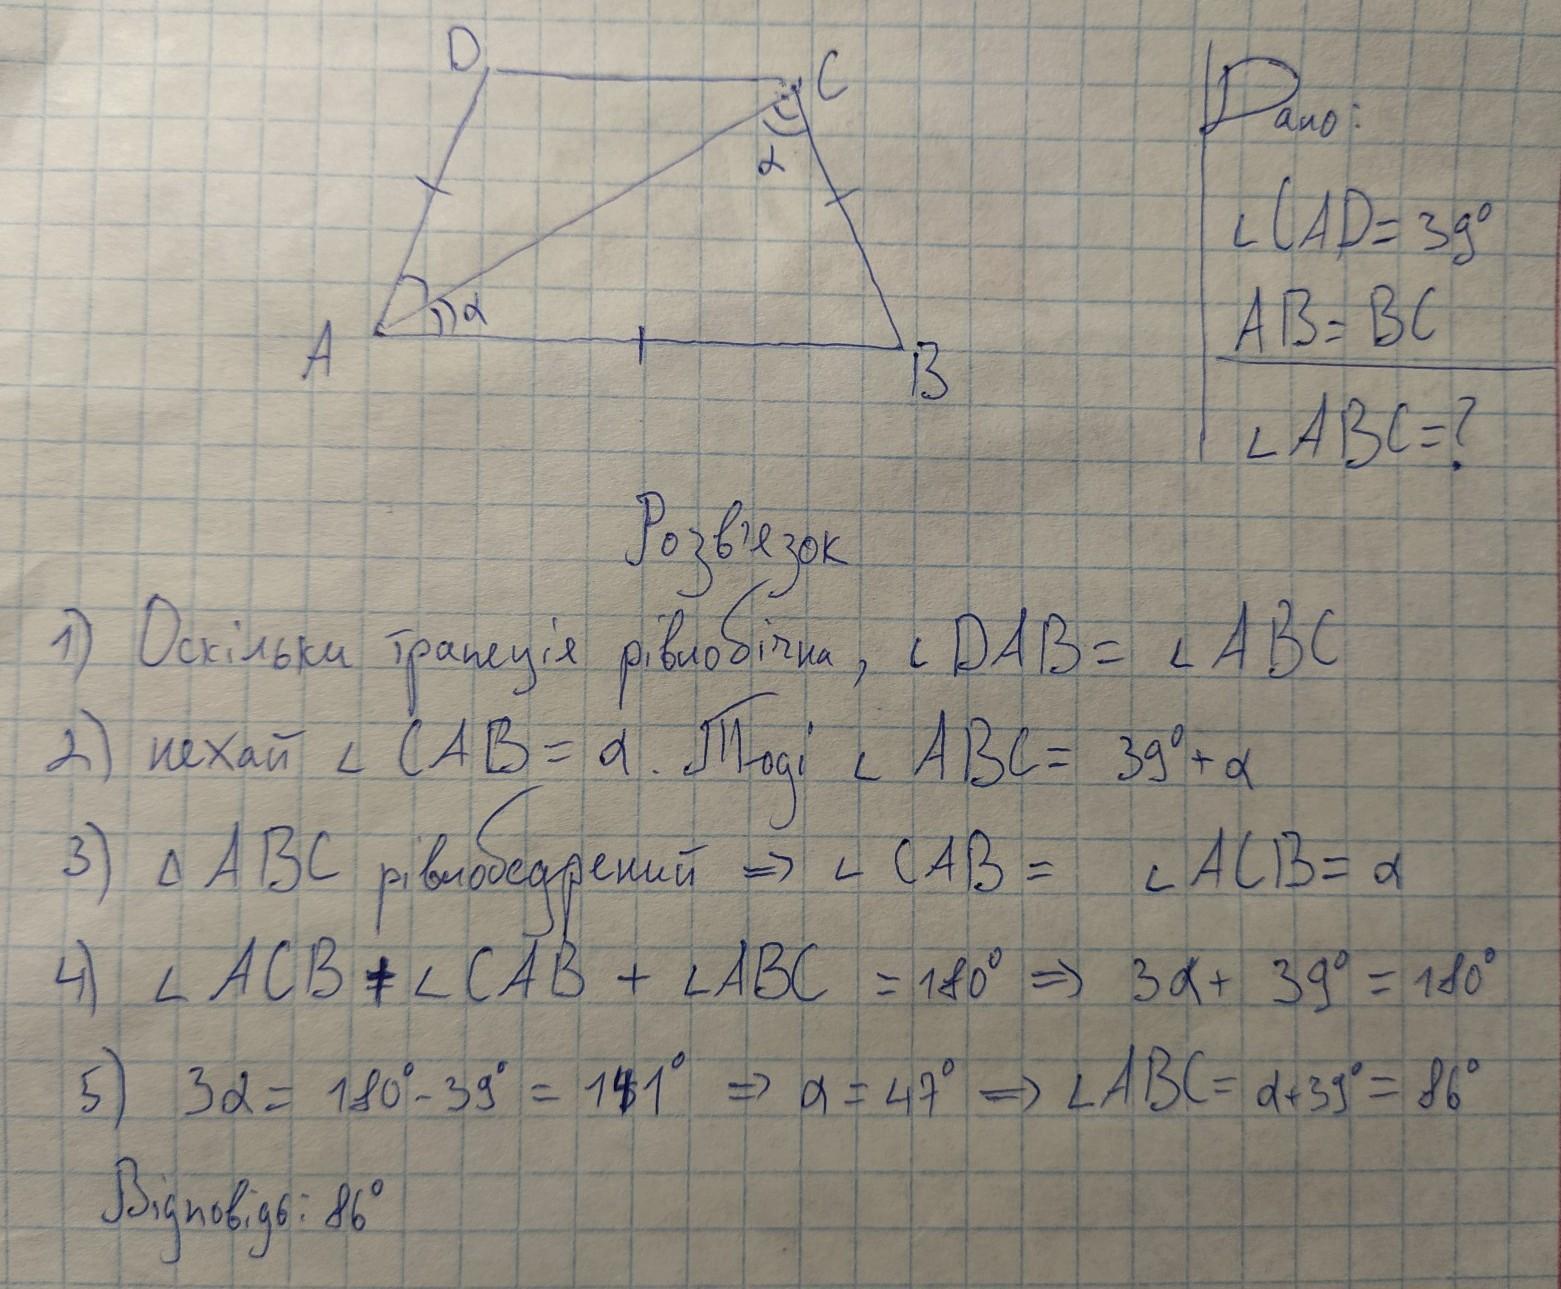 D
C
α
α
A
B
Дано:
∠CAD = 39°
AB = BC
∠ABC = ?
Розв'язок
1) Оскільки трапеція рівнобічна, ∠DAB = ∠ABC
2) нехай ∠CAB = α. Тоді ∠ABC = 39° + α
3) Δ ABC рівнобедрений => ∠CAB = ∠ACB = α
4) ∠ACB + ∠CAB + ∠ABC = 180° => 3α + 39° = 180°
5) 3α = 180° - 39° = 141° => α = 47° => ∠ABC = α + 39° = 86°
Відповідь: 86°